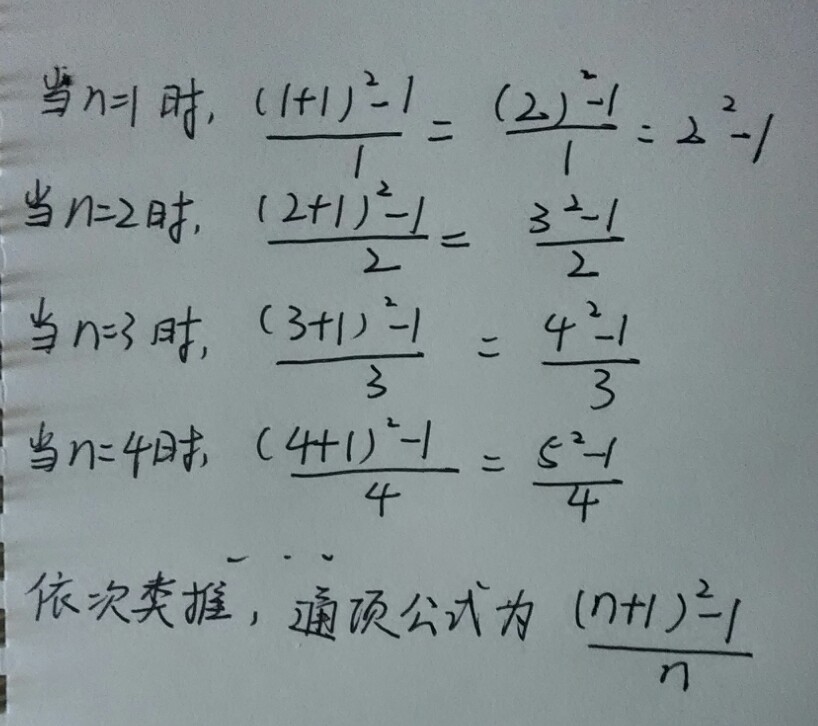 当n=1时, ((1+1)²-1)/1 = ((2)²-1)/1 = 2²-1
当n=2时, ((2+1)²-1)/2 = (3²-1)/2
当n=3时, ((3+1)²-1)/3 = (4²-1)/3
当n=4时, ((4+1)²-1)/4 = (5²-1)/4
...
依次类推, 通项公式为 ((n+1)²-1)/n